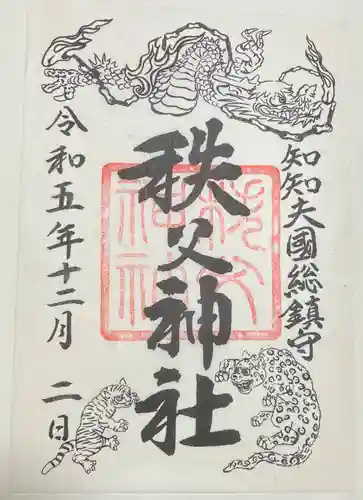 知知夫國総鎮守
秩父神社
秩父神社
令和五年十二月二日